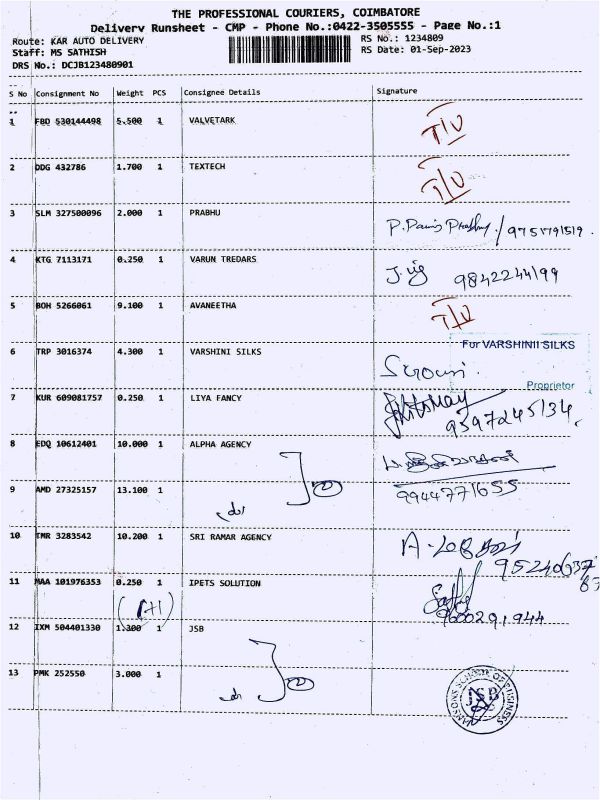 THE PROFESSIONAL COURIERS, COIMBATORE
Delivery Runsheet - CMP - Phone No.:0422-3505555 - Page No.:1
Route: KAR AUTO DELIVERY
RS No.: 1234809
Staff: MS SATHISH
RS Date: 01-Sep-2023
DRS No.: DCJB123480901
S No Consignment No Weight PCS Consignee Details Signature
1 FBD 530144498 5.500 1 VALVETARK
2 DDG 432786 1.700 1 TEXTECH
3 SLM 327500096 2.000 1 PRABHU 9751791519.
4 KTG 7113171 0.250 1 VARUN TREDARS 9842244199
5 BOH 5266061 9.100 1 AVANEETHA
For VARSHINII SILKS
6 TRP 3016374 4.300 1 VARSHINI SILKS
Proprietor
7 KUR 609081757 0.250 1 LIYA FANCY 9597245134.
8 EDQ 10612401 10.000 1 ALPHA AGENCY
9 AMD 27325157 13.100 1 9944771655
10 TMR 3283542 10.200 1 SRI RAMAR AGENCY
11 MAA 101976353 0.250 1 IPETS SOLUTION
(A+1) 9600291944
12 IXM 504401330 1.300 1 JSB
13 PMK 252550 3.000 1
JANSONS SCHOOL OF BUSINESS
JSB